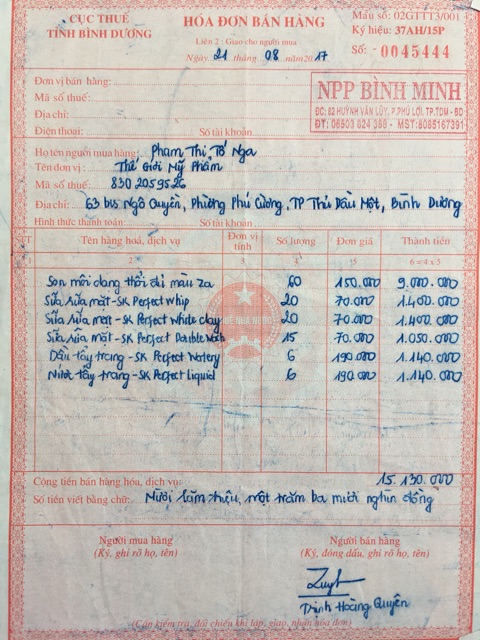 CỤC THUẾ
TỈNH BÌNH DƯƠNG
HÓA ĐƠN BÁN HÀNG
Liên 2 : Giao cho người mua
Ngày 21 tháng 08 năm 2017
Mẫu số: 02GTTT3/001
Ký hiệu: 37AH/15P
Số: 0045444
Đơn vị bán hàng:
Mã số thuế:
Địa chỉ:
Điện thoại: Số tài khoản
NPP BÌNH MINH
ĐC: 82 HUỲNH VĂN LŨY, P.PHÚ LỢI, TP.TDM - BD
ĐT: 06503 824 386 - MST:
Họ tên người mua hàng: Phạm Thị Tố Nga
Tên đơn vị: Thế Giới Mỹ Phẩm
Mã số thuế: 8302059526
Địa chỉ: 63 bis Ngô Quyền, Phường Phú Cường, TP Thủ Dầu Một, Bình Dương
Hình thức thanh toán: Số tài khoản
Tên hàng hóa, dịch vụ Đơn vị tính Số lượng Đơn giá Thành tiền
2 3 4 5 6 = 4 x 3
Son môi dạng thỏi chì màu za 60 150.000 9.000.000
Sữa rửa mặt - SK Perfect whip 20 70.000 1.400.000
Sữa rửa mặt - SK Perfect White clay 20 70.000 1.400.000
Sữa rửa mặt - SK Perfect Double wash 15 70.000 1.050.000
Dầu tẩy trang - SK Perfect Watery 6 190.000 1.140.000
Nước tẩy trang - SK Perfect Liquid 6 190.000 1.140.000
Cộng tiền bán hàng hóa, dịch vụ: 15.130.000
Số tiền viết bằng chữ: Mười lăm triệu, một trăm ba mươi nghìn đồng
Người mua hàng Người bán hàng
(Ký, ghi rõ họ, tên) (Ký, đóng dấu, ghi rõ họ, tên)
Trịnh Hoàng Quyên
(Cần kiểm tra, đối chiếu khi lập, giao, nhận hóa đơn)